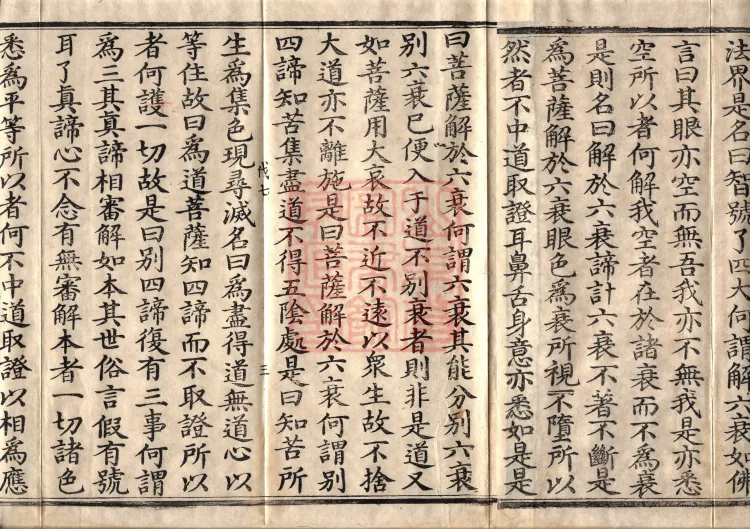 法界是名曰智號了四大何謂解六衰如佛
言曰其眼亦空而無吾我亦不無我是亦悉
空所以者何解我空者在於諸衰而不為衰
是則名曰解於六衰諦計六衰不著不斷是
為菩薩解於六衰眼色為衰所視不墮所以
然者不中道取證耳鼻舌身意亦悉如是是
曰菩薩解於六衰何謂六衰其能分別六衰
別六衰已便入于道不別衰者則非是道又
如菩薩用大哀故不近不遠以眾生故不捨
大道亦不離施是曰菩薩解於六衰何謂別
四諦知苦集盡道不得五陰處是曰知苦所
伐七 三
生為集色現尋滅名曰為盡得道無道心以
等住故曰為道菩薩知四諦而不取證所以
者何護一切故是曰別四諦復有三事何謂
為三其真諦相審解如本其世俗言假有號
耳了真諦心不念有無審解本者一切諸色
悉為平等所以者何不中道取證以相為應